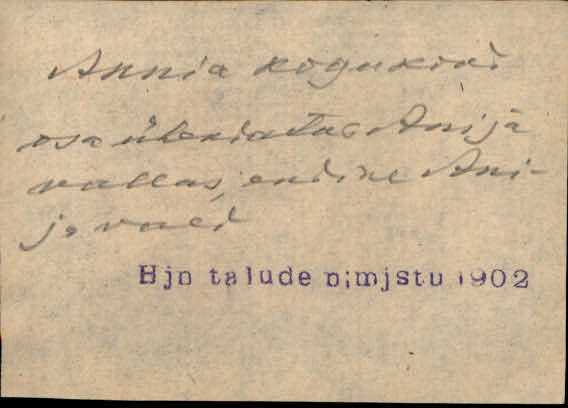 Annia kogukond
osa Anija
vallas, endine Ani-
ja vald
Hjn talude nimistu 1902